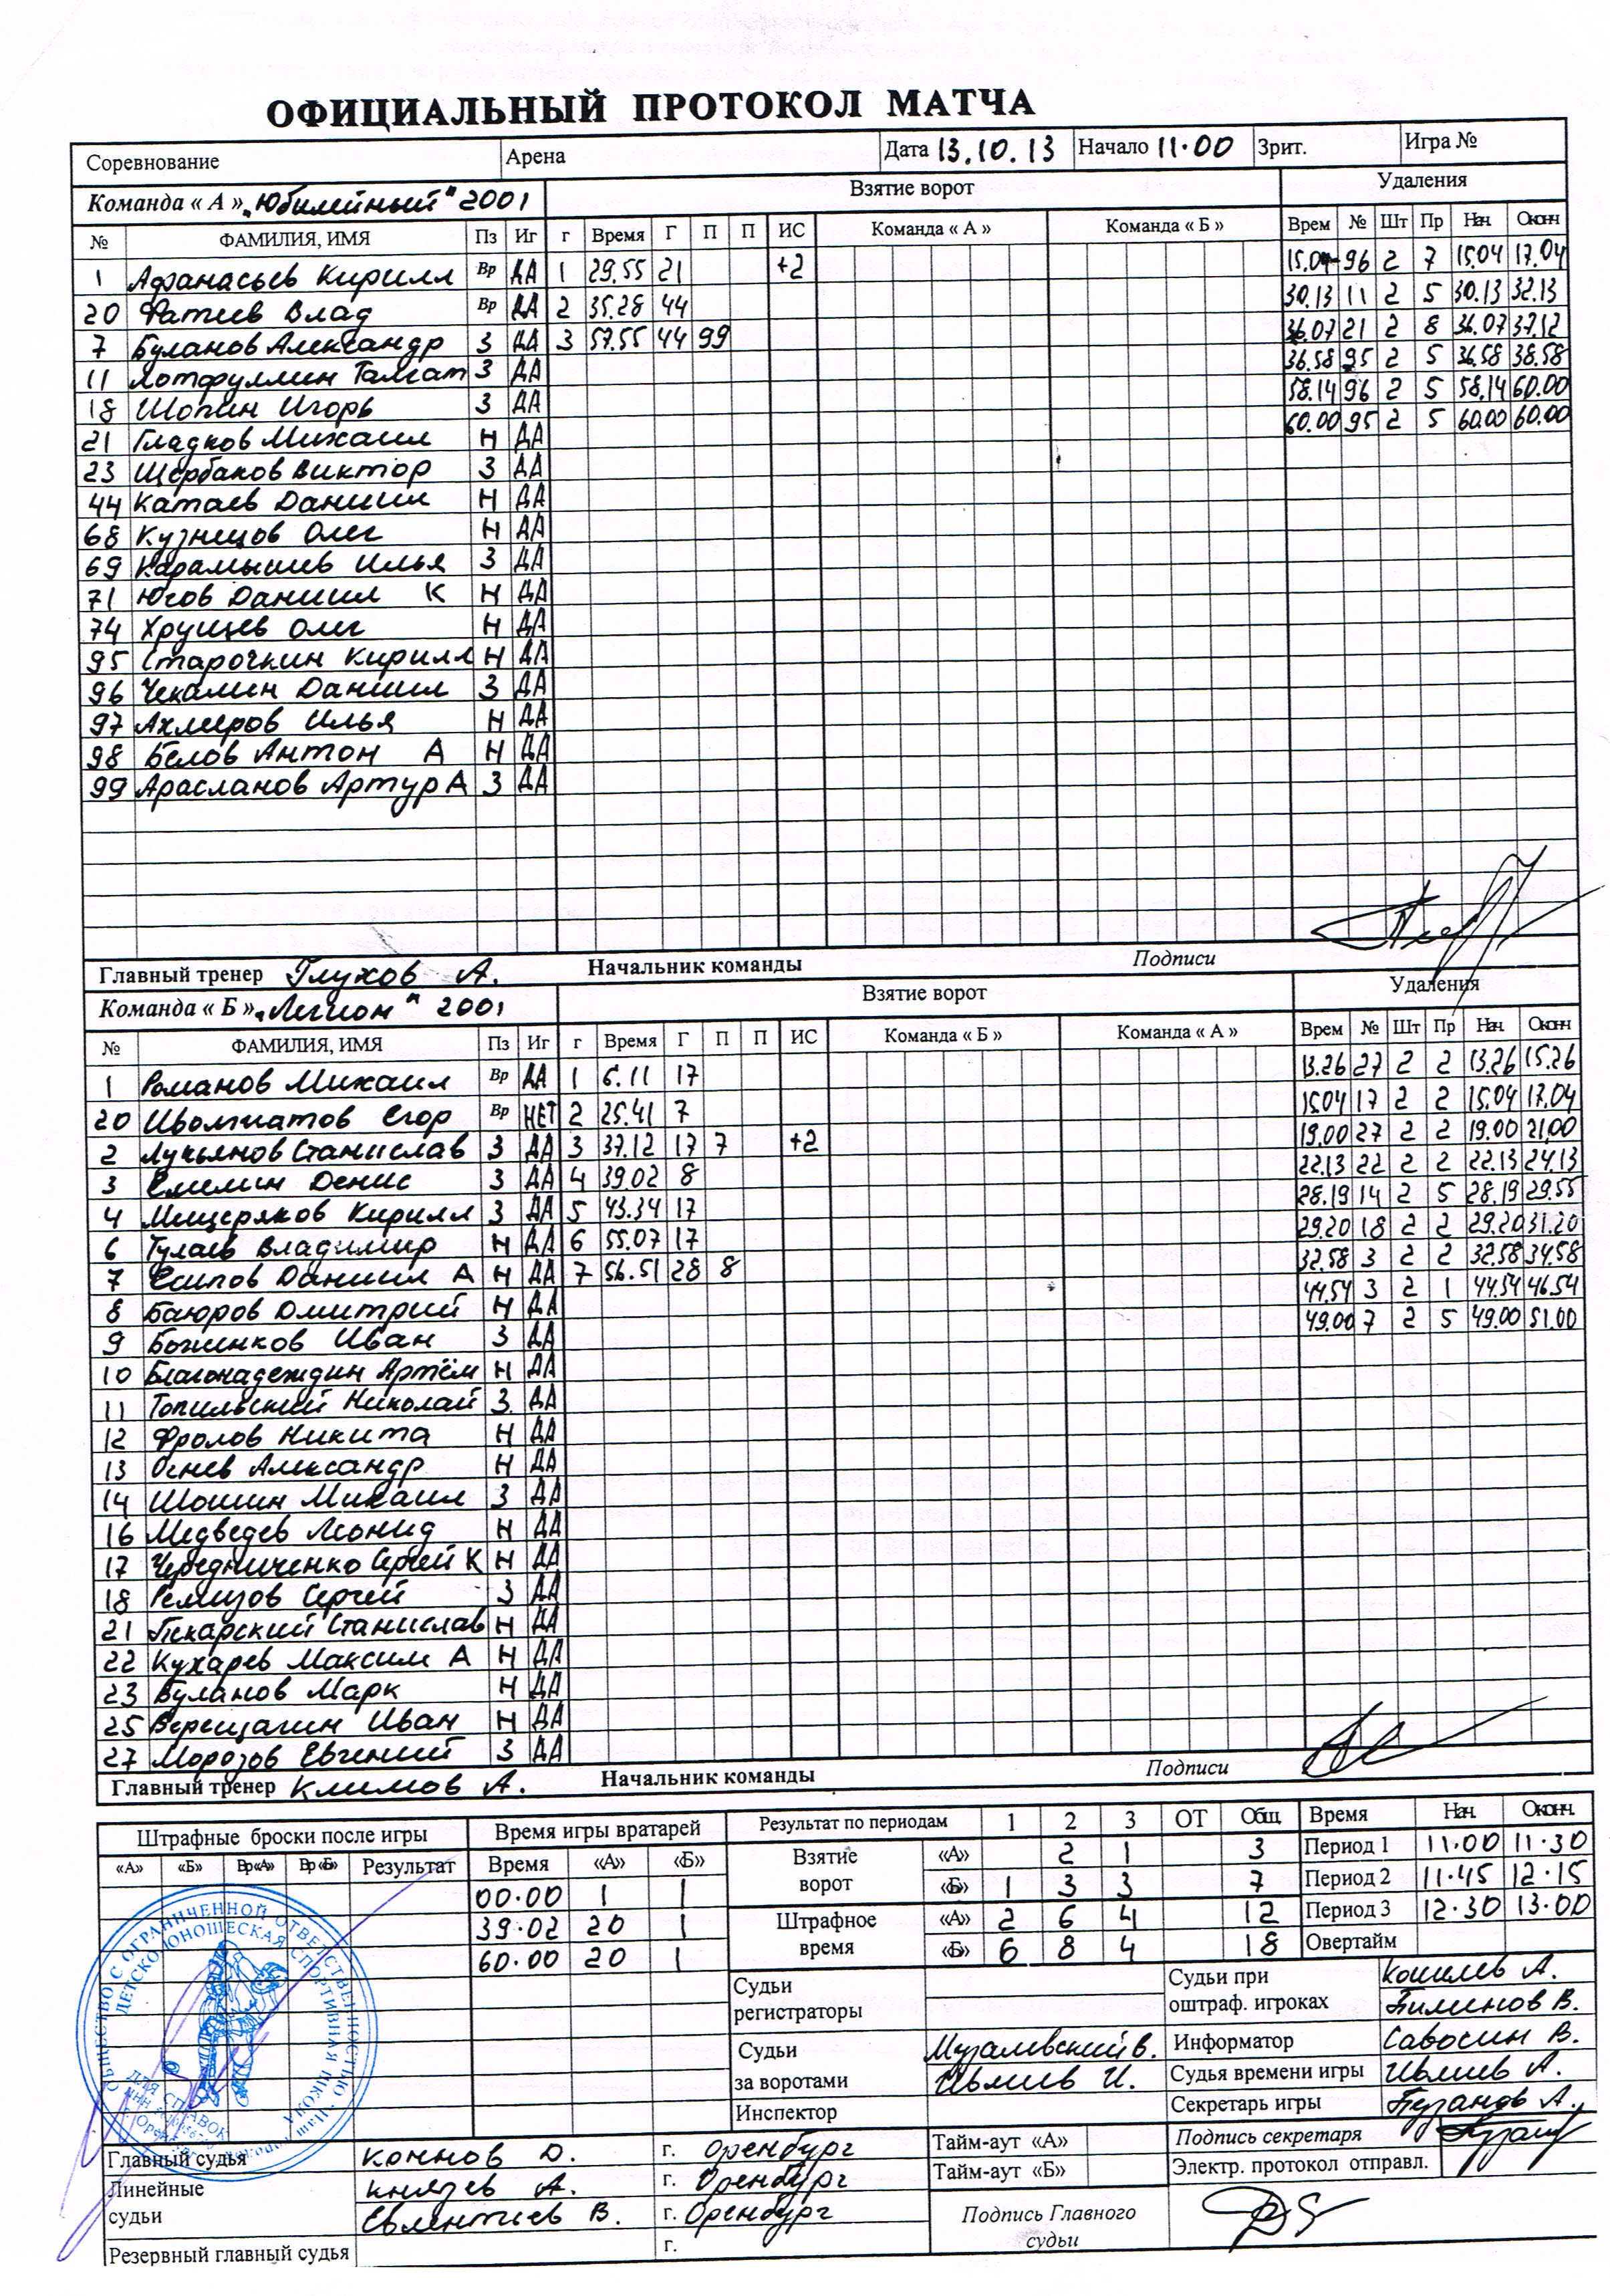 ОФИЦИАЛЬНЫЙ ПРОТОКОЛ МАТЧА
Соревнование Арена Дата 13.10.13 Начало 11.00 Зрит. Игра №
Команда « А » „Юбилейный" 2001 Взятие ворот Удаления
№ ФАМИЛИЯ, ИМЯ Пз Иг г Время Г П П ИС Команда « А » Команда « Б » Врем № Шт Пр Нач. Оконч
1 Афанасьев Кирилл Вр ДА 1 29.55 21 +2 15.04 96 2 7 15.04 17.04
20 Фатеев Влад Вр ДА 2 35.28 44 30.13 11 2 5 30.13 32.13
7 Буланов Александр З ДА 3 57.55 44 99 36.07 21 2 8 36.07 37.12
11 Лотфуллин Талгат З ДА 36.58 95 2 5 36.58 38.58
18 Шопин Игорь З ДА 58.14 96 2 5 58.14 60.00
21 Гладков Михаил Н ДА 60.00 95 2 5 60.00 60.00
23 Щербаков Виктор З ДА
44 Катаев Даниил Н ДА
68 Кузнецов Олег Н ДА
69 Карамышев Илья З ДА
71 Югов Даниил К Н ДА
74 Хрущев Олег Н ДА
95 Старочкин Кирилл Н ДА
96 Чекалин Даниил З ДА
97 Ахмеров Илья Н ДА
98 Белов Антон А Н ДА
99 Арасланов Артур А З ДА
Главный тренер Глухов А. Начальник команды Подписи
Команда « Б » „Легион" 2001 Взятие ворот Удаления
№ ФАМИЛИЯ, ИМЯ Пз Иг г Время Г П П ИС Команда « Б » Команда « А » Врем № Шт Пр Нач. Оконч
1 Романов Михаил Вр ДА 1 6.11 17 13.26 27 2 2 13.26 15.26
20 Егор Вр НЕТ 2 25.41 7 15.04 17 2 2 15.04 17.04
2 Лукьянов Станислав З ДА 3 37.12 17 7 +2 19.00 27 2 2 19.00 21.00
3 Емелин Денис З ДА 4 39.02 8 22.13 22 2 2 22.13 24.13
4 Мещеряков Кирилл З ДА 5 43.34 17 28.19 14 2 5 28.19 29.55
6 Тулаев Владимир Н ДА 6 55.07 17 29.20 18 2 2 29.20 31.20
7 Есипов Даниил А Н ДА 7 56.51 28 8 32.58 3 2 2 32.58 34.58
8 Баюров Дмитрий Н ДА 44.54 3 2 1 44.54 46.54
9 Боженков Иван З ДА 49.00 7 2 5 49.00 51.00
10 Благонадеждин Артём Н ДА
11 Топильский Николай З. ДА
12 Фролов Никита Н ДА
13 Огнев Александр Н ДА
14 Шошин Михаил З ДА
16 Медведев Леонид Н ДА
17 Чередниченко Сергей К Н ДА
18 Ремизов Сергей З ДА
21 Пекарский Станислав Н ДА
22 Кухарев Максим А Н ДА
23 Буланов Марк Н ДА
25 Верещагин Иван Н ДА
27 Морозов Евгений З ДА
Главный тренер Климов А. Начальник команды Подписи
Штрафные броски после игры Время игры вратарей Результат по периодам 1 2 3 ОТ Общ. Время Нач. Оконч.
«А» «Б» Вр«А» Вр«Б» Результат Время «А» «Б» Взятие ворот «А» 2 1 3 Период 1 11.00 11.30
00.00 1 1 «Б» 1 3 3 7 Период 2 11.45 12.15
39.02 20 1 Штрафное время «А» 2 6 4 12 Период 3 12.30 13.00
60.00 20 1 «Б» 6 8 4 18 Овертайм
Судьи регистраторы Судьи при оштраф. игроках Кошелев А.
Пименов В.
Судьи за воротами Музалевский В. Информатор Савосин В.
Ивлиев И. Судья времени игры Ивлиев А.
Инспектор Секретарь игры Бузанов А.
Главный судья Коннов О. г. Оренбург Тайм-аут «А» Подпись секретаря
Линейные судьи Князев А. г. Оренбург Тайм-аут «Б» Электр. протокол отправл.
Евлентьев В. г. Оренбург Подпись Главного судьи
Резервный главный судья г.
ОБЩЕСТВО С ОГРАНИЧЕННОЙ ОТВЕТСТВЕННОСТЬЮ
ДЕТСКО-ЮНОШЕСКАЯ СПОРТИВНАЯ ШКОЛА
ДЛЯ СПРАВОК